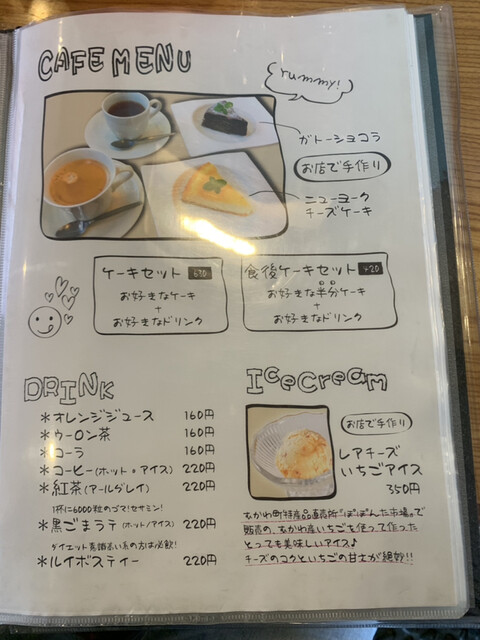 CAFE MENU
yummy!
ガトーショコラ
お店で手作り
ニューヨーク
チーズケーキ
ケーキセット 630
お好きなケーキ
+
お好きなドリンク
食後ケーキセット +20
お好きな半分ケーキ
+
お好きなドリンク
DRINK
*オレンジジュース 160円
*ウーロン茶 160円
*コーラ 160円
*コーヒー(ホット・アイス) 220円
*紅茶(アールグレイ) 220円
1杯に6000粒のゴマ!セサミン!
*黒ごまラテ(ホット/アイス) 220円
ダイエット意識高い系の方は必飲!
*ルイボスティー 220円
Ice Cream
お店で手作り
レアチーズ
いちごアイス
350円
むかわ町特産品直売所"ぽぽんた市場"で
販売の、むかわ産いちごを使って作った
とっても美味しいアイス♪
チーズのコクといちごの甘さが絶妙!!